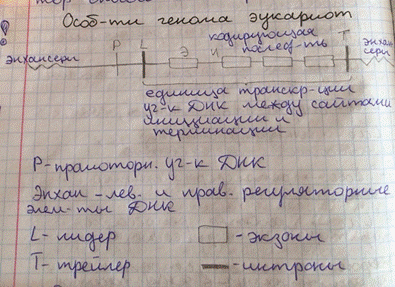 Особ-ти генома эукариот
энхансеры P L Э и кодирующая послед-ть T энхан серы
единица транскр-ции
уч-к ДНК между сайтами
инициации и
терминации
Р-промоторн. уч-к ДНК
Энхан-лев. и прав. регуляторные
элем-ты ДНК
L-лидер - экзоны
Т-трейлер - интроны